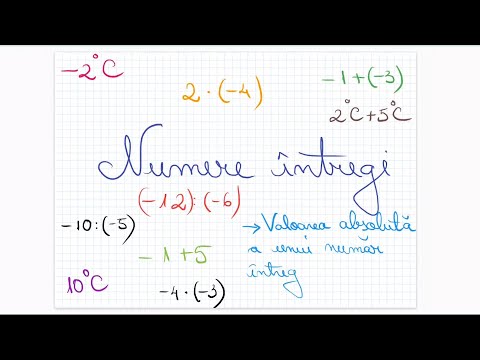 -2°C
2·(-4)
-1+(-3)
2°C+5°C
Numere întregi
(-12):(-6)
-10:(-5)
→ Valoarea absolută
a unui număr
întreg
-1+5
10°C
-4·(-3)